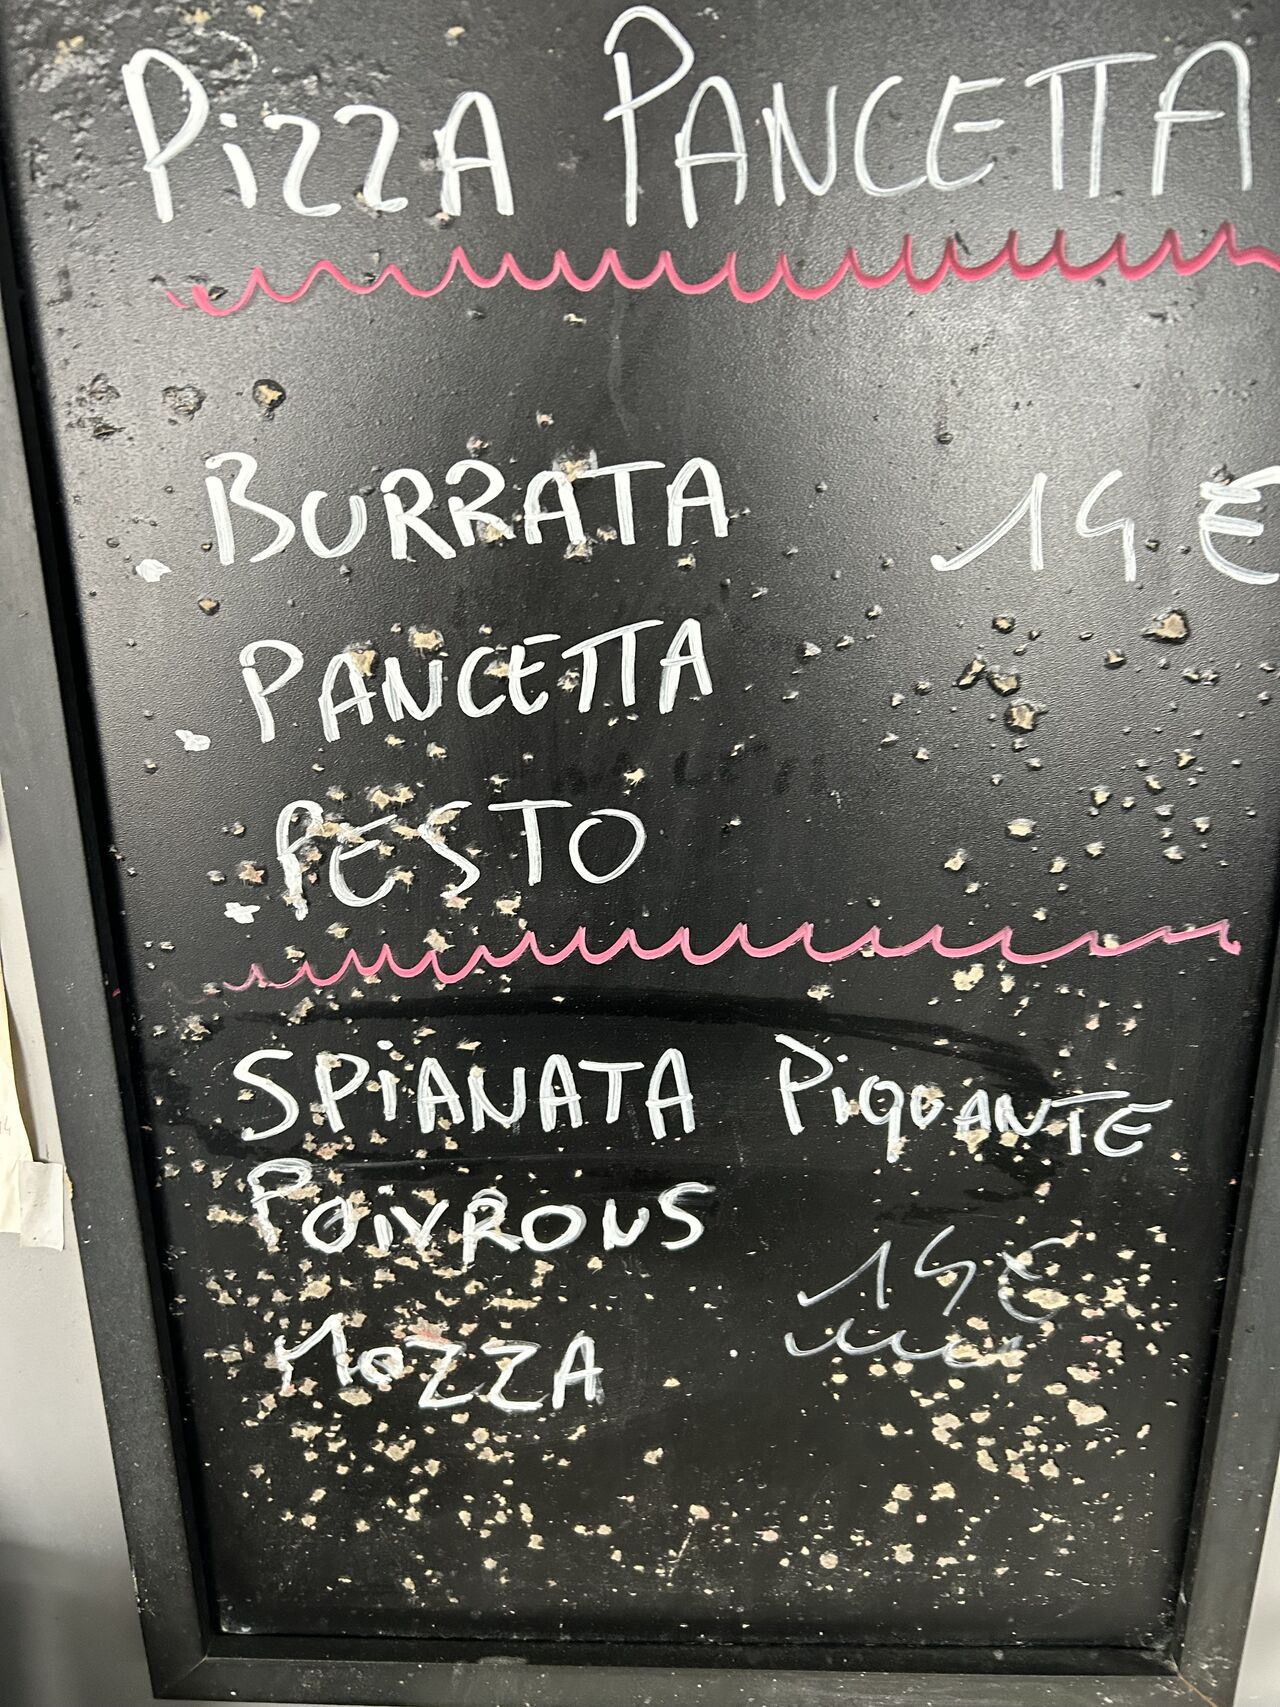 PIZZA PANCETTA
. BURRATA 14 €
. PANCETTA
. PESTO
SPIANATA PIQUANTE
POIVRONS
14 €
MOZZA